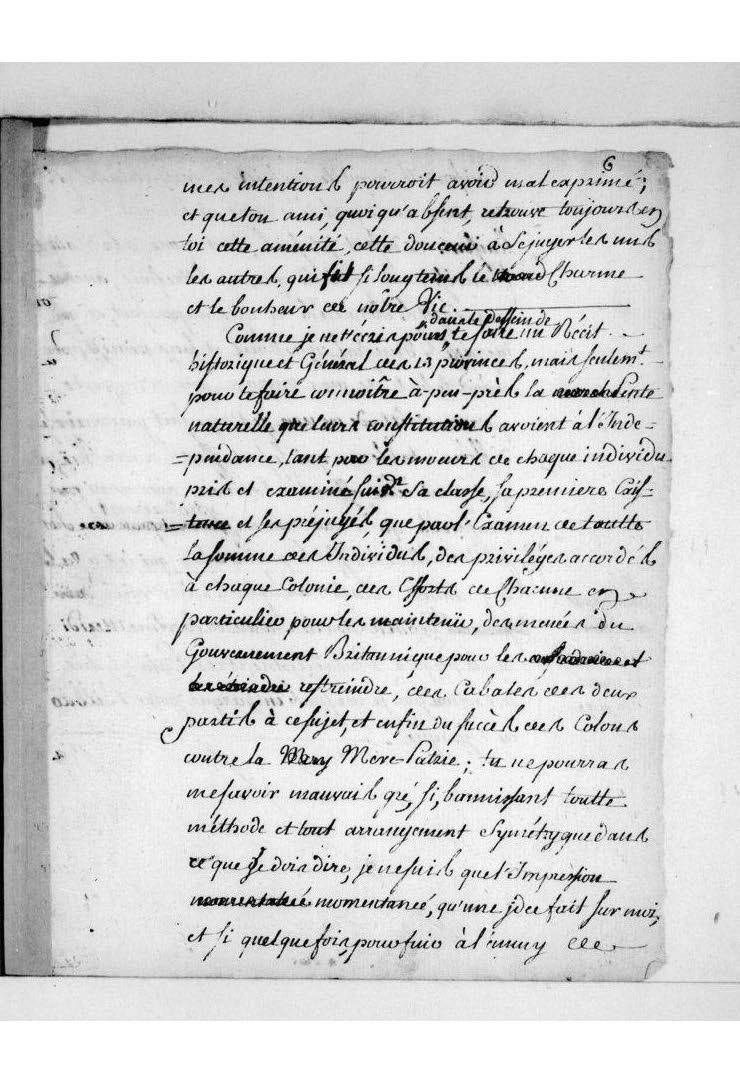 6
mes intentions pourroit avoir mal exprimé;
et que ton ami, quoiqu'absent, retrouve toujours en
toi cette aménité, cette douceur à Se juger les uns
les autres, qui fit si longtems le Charme
et le bonheur de nôtre Vie.
dans le dessein de
Comme je ne t'écris point, te faire un Récit
historique et Général des 13 provinces, mais seulemt.
pour te faire connoître à-peu-près la Pente
naturelle que leurs constitutions avoient à l'Inde-
=pendance, tant par les moeurs de chaque individu
pris et examiné suivt. Sa classe, sa premiere Exis-
=tence et ses préjugés, que par l'Examen de toutte
la somme des Individus, des priviléges accordés
à chaque Colonie, des Efforts de Chacune en
particulier pour les maintenir, des menées du
Gouvernement Britannique pour les
restreindre, des Cabales des deux
partis à ce sujet, et enfin du succès des Colons
contre la Mere-Patrie; tu ne pourras
me savoir mauvais gré, si, bannissant toutte
méthode et tout arrangement Symétryque dans
ce que je dois dire, je ne suis que l'Impression
momentaneé, qu'une jdée fait sur moi;
et si quelque fois, pour fuir à l'ennuy de